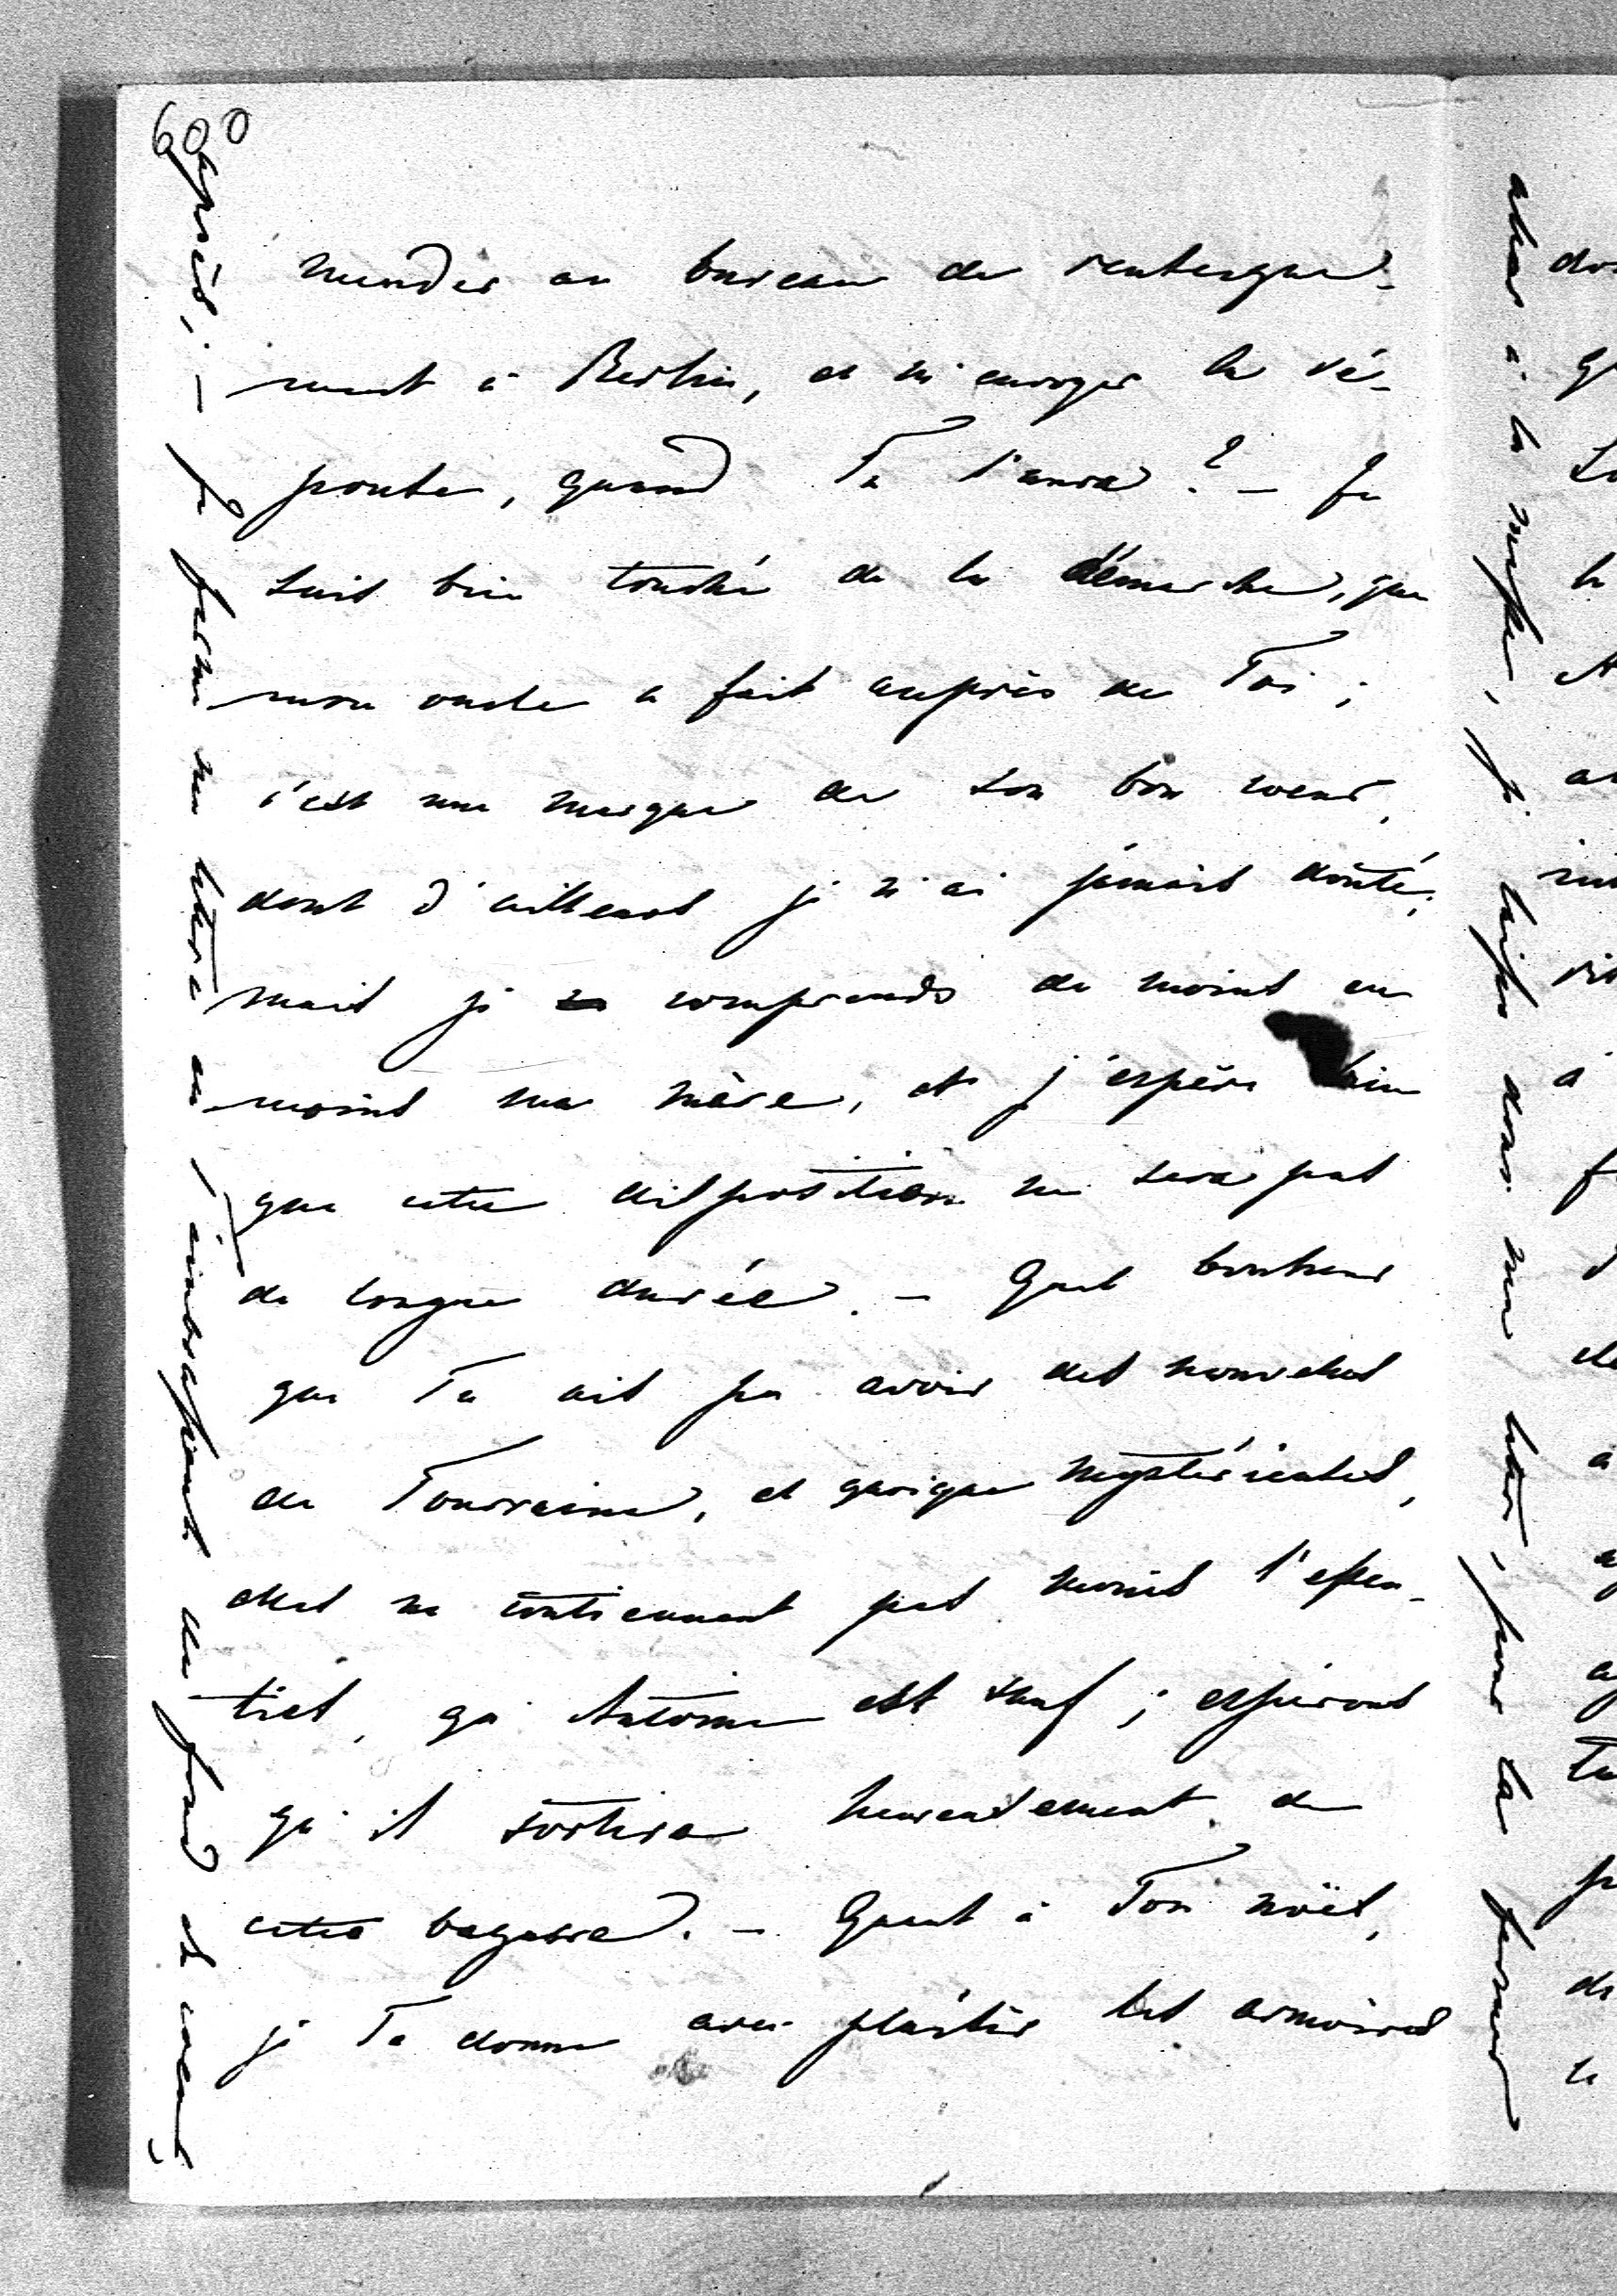 600
mander au bureau de renseigne-
ment à Berlin, et m'envoyer la ré-
ponse, quand Tu l'auras? – Je
suis bien touché de la démarche, que
mon oncle a fait auprès de Toi;
c'est une marque de son bon coeur,
dont d'ailleurs je n'ai jamais douté;
mais je comprends de moins en
moins ma mère, et j'espère bien
que cette disposition ne sera pas
de longue durée. – Quel bonheur
que Tu ais pu avoir des nouvelles
de Tourraine, et quoique mystérieuses,
elles ne contiennent pas moins l'essen-
tiel, qu'Antoine est sauf; espérons
qu'il sortira heureusement de
cette bagarre. – Quant à Ton noël,
je Te donne avec plaisir les armoires
après; – je ferme ma lettre en T'embrassant du fond du coeur,
allons à la messe, je laisse donc ma lettre, pour la fermer